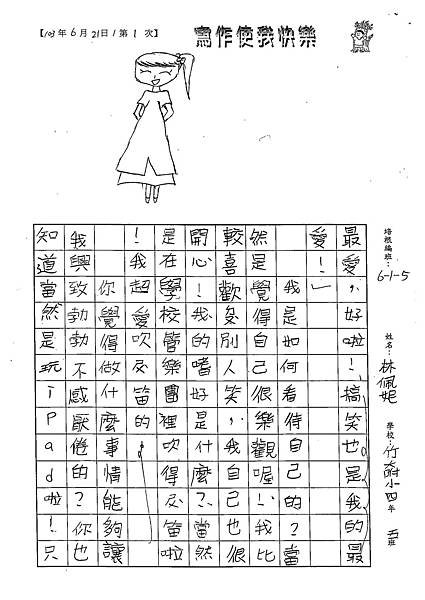 【103年6月21日/第1次】
寫作使我快樂
培根編班：6-1-5
姓名：林佩妮
學校：竹蒔小四年 班
最愛，好啦！搞笑也是我的最
愛！」
我是如何看待自己的？當
然是覺得自己很樂觀喔！我比
較喜歡別人笑，我自己也很
開心！我的嗜好是什麼？當然
是在學校管樂團裡吹得笛啦
！我超愛吹笛的。
你覺得做什麼事情能夠讓
我興致勃勃不感厭倦的？你也
知道當然是玩iPad啦！只